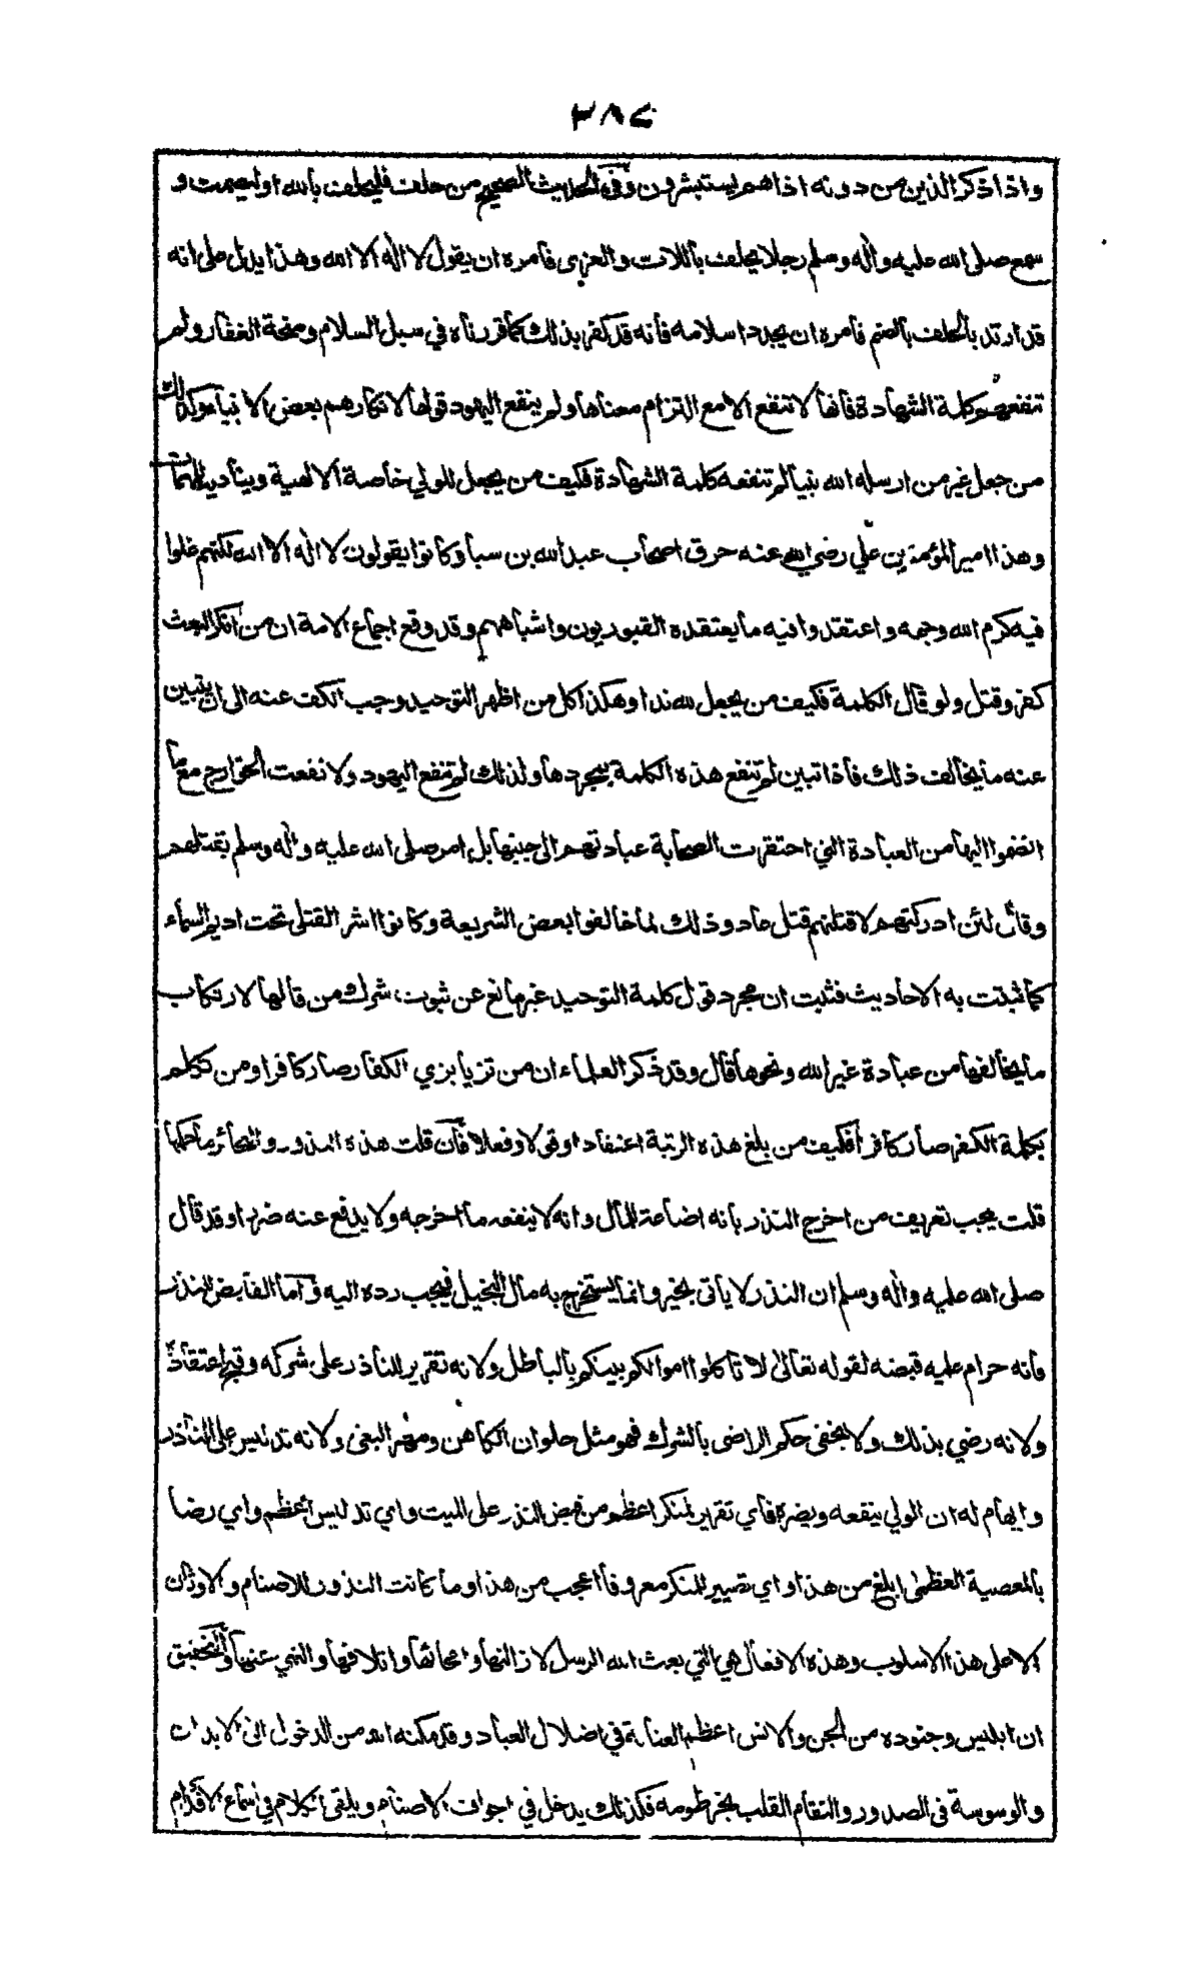 ٣٨٤
واذا ذكر الذين من دونه اذا هم يستبشرون وفى الحديث الصحيح من حلف فليحلف بالله او ليصمت و
سمع صلى الله عليه واٰله وسلم رجلا يحلف باللات والعزى فامره ان يقول لا اله الا الله وهذا يدل على انه
قد ارتد بالحلف بالصنم فامره ان يجدد اسلامه فانه قد كفر بذلك كما قررناه في سبل السلام ومنحة الغفار ولم
تنفعهم كلمة الشهادة فانها لا تنفع الا مع التزام معناها ولم ينفع اليهود قولها لانكارهم بعض الانبياء وكذلك
من جعل غير من ارسله الله نبيا لم تنفعه كلمة الشهادة فكيف من يجعل للولي خاصة الالهية ويناديه للمهمات
وهذا امير المؤمنين علي رضي الله عنه حرق اصحاب عبد الله بن سبا وكانوا يقولون لا اله الا الله لكنهم غلوا
فيه كرم الله وجهه واعتقدوا فيه ما يعتقده القبوريون واشباههم وقد وقع اجماع الامة ان من انكر البعث
كفر وقتل ولو قال الكلمة فكيف من يجعل لله ندا وهكذا كل من اظهر التوحيد وجب الكف عنه الى ان يتبين
عنه ما يخالف ذلك فاذا تبين لم تنفع هذه الكلمة بمجردها ولذلك لم تنفع اليهود ولا نفعت الخوارج مع ما
انضموا اليها من العبادة التي احتقرت الصحابة عبادتهم الى جنبها بل امر صلى الله عليه واٰله وسلم بقتلهم
وقال لئن ادركتهم لاقتلنهم قتل عاد وذلك لما خالفوا بعض الشريعة وكانوا اشر القتلى تحت اديم السماء
كما ثبتت به الاحاديث فثبت ان مجرد قول كلمة التوحيد غير مانع عن ثبوت شرك من قالها لارتكاب
ما يخالفها من عبادة غير الله ونحوها قال وقد ذكر العلماء ان من تزيا بزي الكفار صار كافرا ومن تكلم
بكلمة الكفر صار كافرا فكيف من بلغ هذه الرتبة اعتقادا وقولا وفعلا فان قلت هذه النذور والنحائر ما حكمها
قلت يجب تعريف من اخرج النذر بانه اضاعة للمال وانه لا ينفعه ما اخرجه ولا يدفع عنه ضررا وقد قال
صلى الله عليه واٰله وسلم ان النذر لا ياتى بخير وانما يستخرج به مال البخيل فيجب رده اليه واما القابض للنذر
فانه حرام عليه قبضه لقوله تعالى لا تاكلوا اموالكم بينكم بالباطل ولانه تقرير للناذر على شركه وقبح اعتقاده
ولانه رضي بذلك ولا يخفى حكم الراضى بالشرك فهو مثل حلوان الكاهن ومهر البغى ولانه تدليس على الناذر
وايهام له ان الولي ينفعه ويضره فاي تقرير لمنكر اعظم من قبض النذر على الميت واي تدليس اعظم واي رضا
بالمعصية العظمى ابلغ من هذا واي تصيير للمنكر معروفا اعجب من هذا وما كانت النذور للاصنام والاوثان
الا على هذا الاسلوب وهذه الافعال هي التي بعث الله الرسل لازالتها وامحائها واتلافها والنهي عنها والتحقيق
ان ابليس وجنوده من الجن والانس اعظم العناية في اضلال العباد وقد مكنه الله من الدخول الى الابدان
والوسوسة فى الصدور والتقام القلب بخرطومه فكذلك يدخل في اجواف الاصنام ويلقى الكلام في اسماع الاقدام